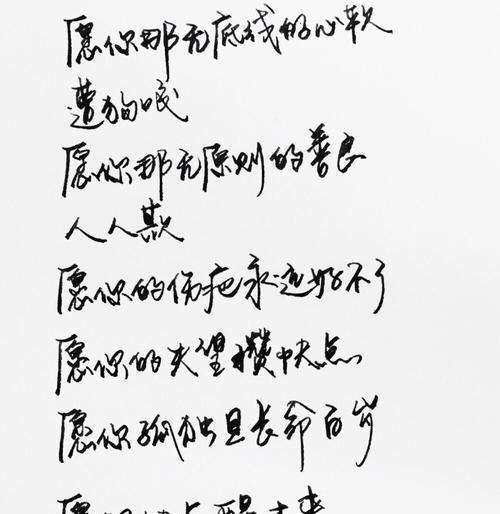 愿你那无底线的心软
遭狗咬
愿你那无原则的善良
人人欺
愿你的伤疤永远好不了
愿你的失望攒快点
愿你孤独且长命百岁
愿